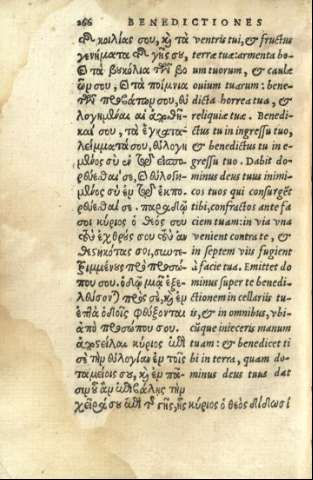 266 BENEDICTIONES
τῆς κοιλίας σου, καὶ τὰ
γενήματα τῆς γῆς σου,
καὶ τὰ βουκόλια τῶν βο
ῶν σου, καὶ τὰ ποίμνια
τῶν προβάτων σου, εὐ
λογημέναι αἱ ἀποθῆ-
και σου, τὰ ἐγκατα-
λείμματά σου, εὐλογη
μένος σὺ ἐν τῷ εἰσπο-
ρεύεσθαί σε, καὶ εὐλογη-
μένος σὺ ἐν τῷ ἐκπο-
ρεύεσθαί σε. παραδῷ
σοι κύριος ὁ θεός σου
τοὺς ἐχθρούς σου τοὺς ἀν
θεστηκότας σοι, συντε-
τριμμένους πρὸ προσώ-
που σου. ὁδῷ μιᾷ ἐξε-
λεύσονται πρὸς σὲ, καὶ ἐν
ἑπτὰ ὁδοῖς φεύξονται
ἀπὸ προσώπου σου.
ἀποστείλαι κύριος ἐπὶ
σὲ τὴν εὐλογίαν ἐν τοῖς
ταμείοις σου, καὶ ἐν πᾶ-
σιν οὗ ἂν ἐπιβάλῃς τὴν
χεῖρά σου ἐπὶ τῆς γῆς, ἧς κύριος ὁ θεὸς δίδωσί
ventris tui, & fructus
terræ tuæ: armenta bo
um tuorum, & caulæ
ouium tuarum: bene-
dicta horrea tua, &
reliquiæ tuæ. Benedi-
ctus tu in ingressu tuo,
& benedictus tu in e-
gressu tuo. Dabit do-
minus deus tuus inimi-
cos tuos qui consurgẽt
tibi, confractos ante fa
ciem tuam: in via vna
venient contra te, &
in septem viis fugient
à facie tua. Emittet do
minus super te benedi-
ctionem in cellariis tu-
is, & in omnibus, vbi-
cũque inieceris manum
tuam: & benedicet ti
bi in terra, quam do-
minus deus tuus dat